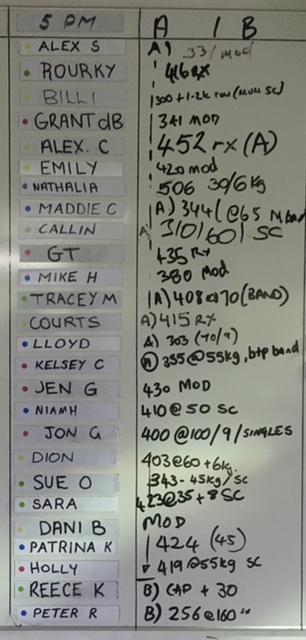 5 PM A / B
ALEX S A) 331 mod
ROURKY 416 RX
BILLI 1300 + 1.2k row (mum SC)
GRANT dB 341 MOD
ALEX. C 452 rx (A)
EMILY 420 mod
NATHALIA 506 30/6kg
MADDIE C A) 344 (@65 M band
CALLIN A 310/60/ SC
GT 435 RX
MIKE H 380 Mod
TRACEY M (A) 408@70 (BAND)
COURTS A) 415 RX
LLOYD A) 303 (70/9)
KELSEY C A) 355@55kg, btp band
JEN G 430 MOD
NIAMH 410 @ 50 SC
JON G 400 @100/9/SINGLES
DION 403@60 + 6kg.
SUE O 343 - 45kg/SC
SARA 423@35 + 8 SC
DANI B MOD
PATRINA K 424 (45)
HOLLY 419 @55kg SC
REECE K B) CAP + 30
PETER R B) 256 @160